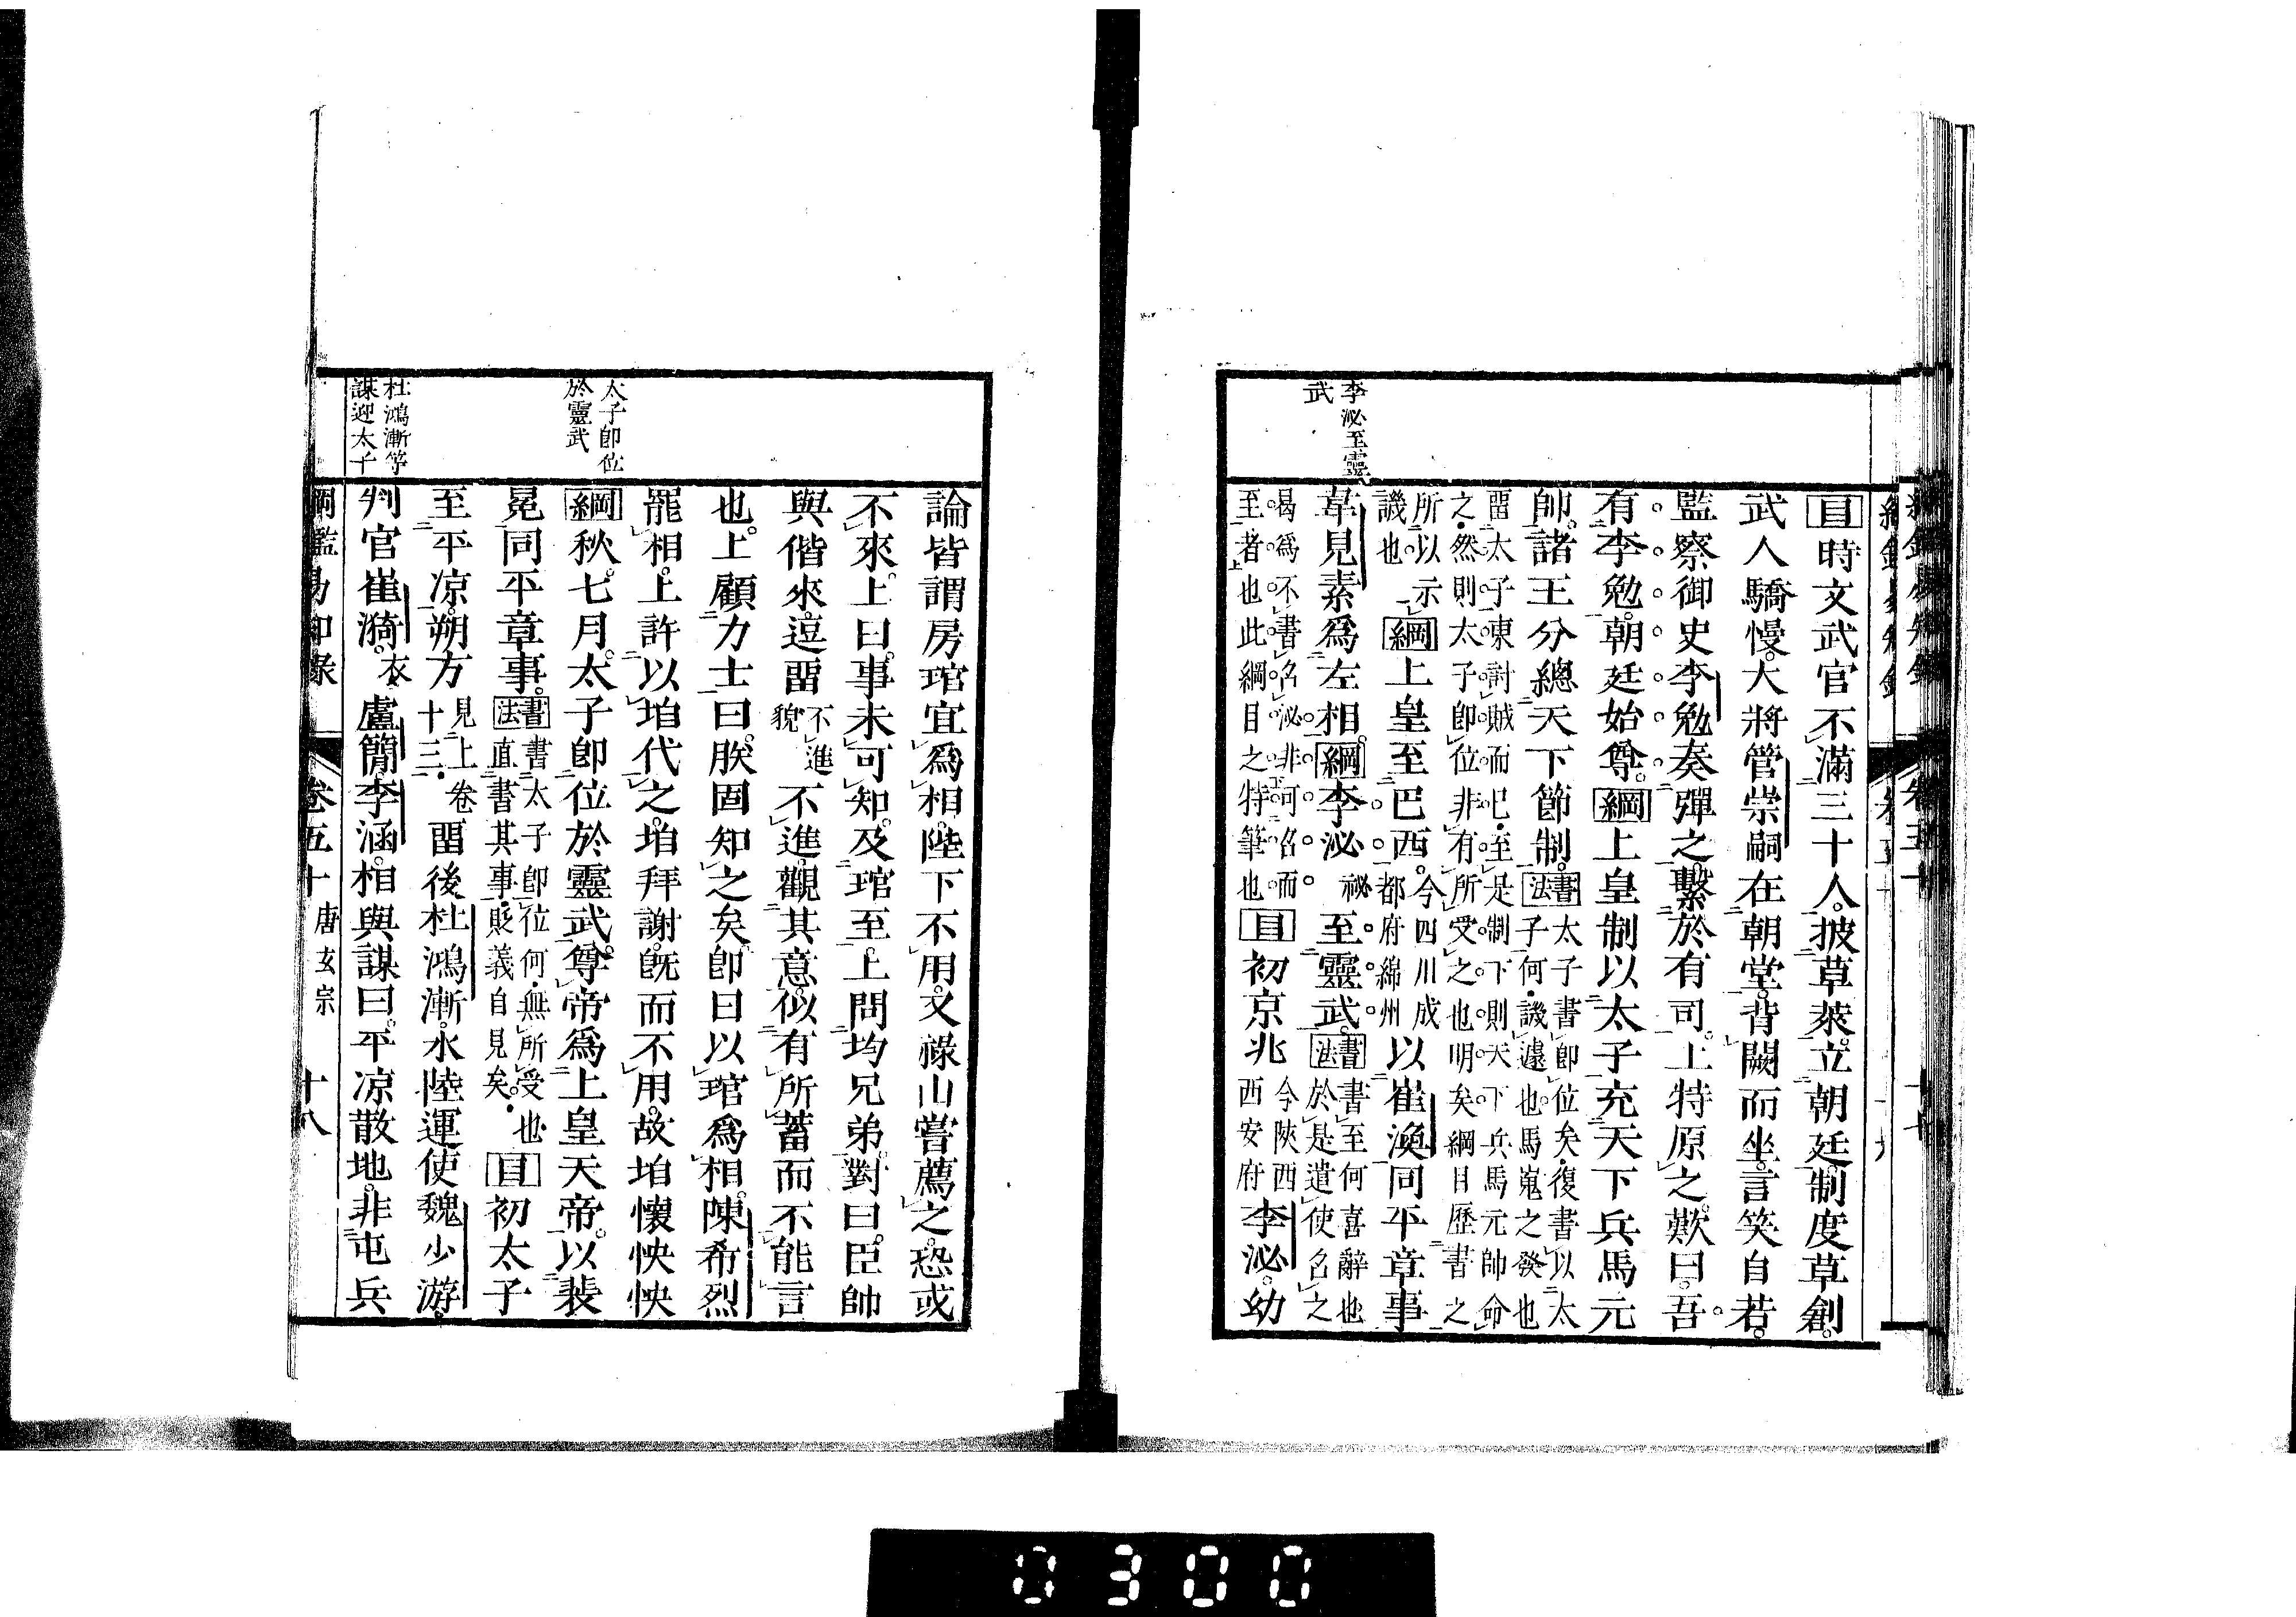 李泌至靈
武
目時文武官不滿三十人披草萊立朝廷制度草創
武人驕慢大將管崇嗣在朝堂背闕而坐言笑自若
監察御史李勉奏彈之繫於有司上特原之歎曰吾
有李勉朝廷始尊綱上皇制以太子充天下兵馬元
帥諸王分總天下節制書法太子書卽位矣復書以太
子何譏遽也馬嵬之發也
畱太子東討賊而已至是制下則天下兵馬元帥命
之然則太子卽位非有所受之也明矣綱目歷書之
所以示
譏也綱上皇至巴西今四川成
都府綿州以崔渙同平章事
韋見素爲左相綱李泌祕至靈武書法書至何喜辭也
於是遣使召之
曷爲不書召泌非可召而
至者也此綱目之特筆也目初京兆今陝西
西安府李泌幼
太子卽位
於靈武
杜鴻漸等
謀迎太子
論皆謂房琯宜爲相陛下不用又祿山嘗薦之恐或
不來上曰事未可知及琯至上問均兄弟對曰臣帥
與偕來逗畱不進
貌不進觀其意似有所蓄而不能言
也上顧力士曰朕固知之矣卽日以琯爲相陳希烈
罷相上許以垍代之垍拜謝旣而不用故垍懷怏怏
綱秋七月太子卽位於靈武尊帝爲上皇天帝以裴
冕同平章事書法書太子卽位何無所受也
直書其事貶義自見矣目初太子
至平凉朔方見上卷
十三畱後杜鴻漸水陸運使魏少游
判官崔漪衣盧簡李涵相與謀曰平凉散地非屯兵
綱鑑易知錄 卷五十 唐玄宗 十八
0300